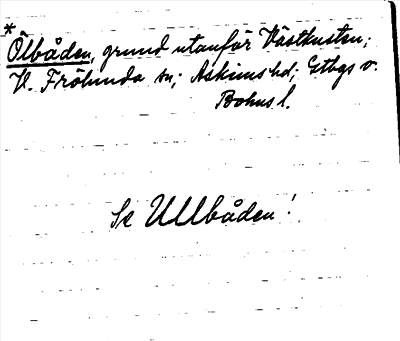 *
Ölbåden, grund utanför Västkusten;
V. Frölunda sn; Askims hd; Gtbgs o.
Bohus l.
Se Ullbåden!